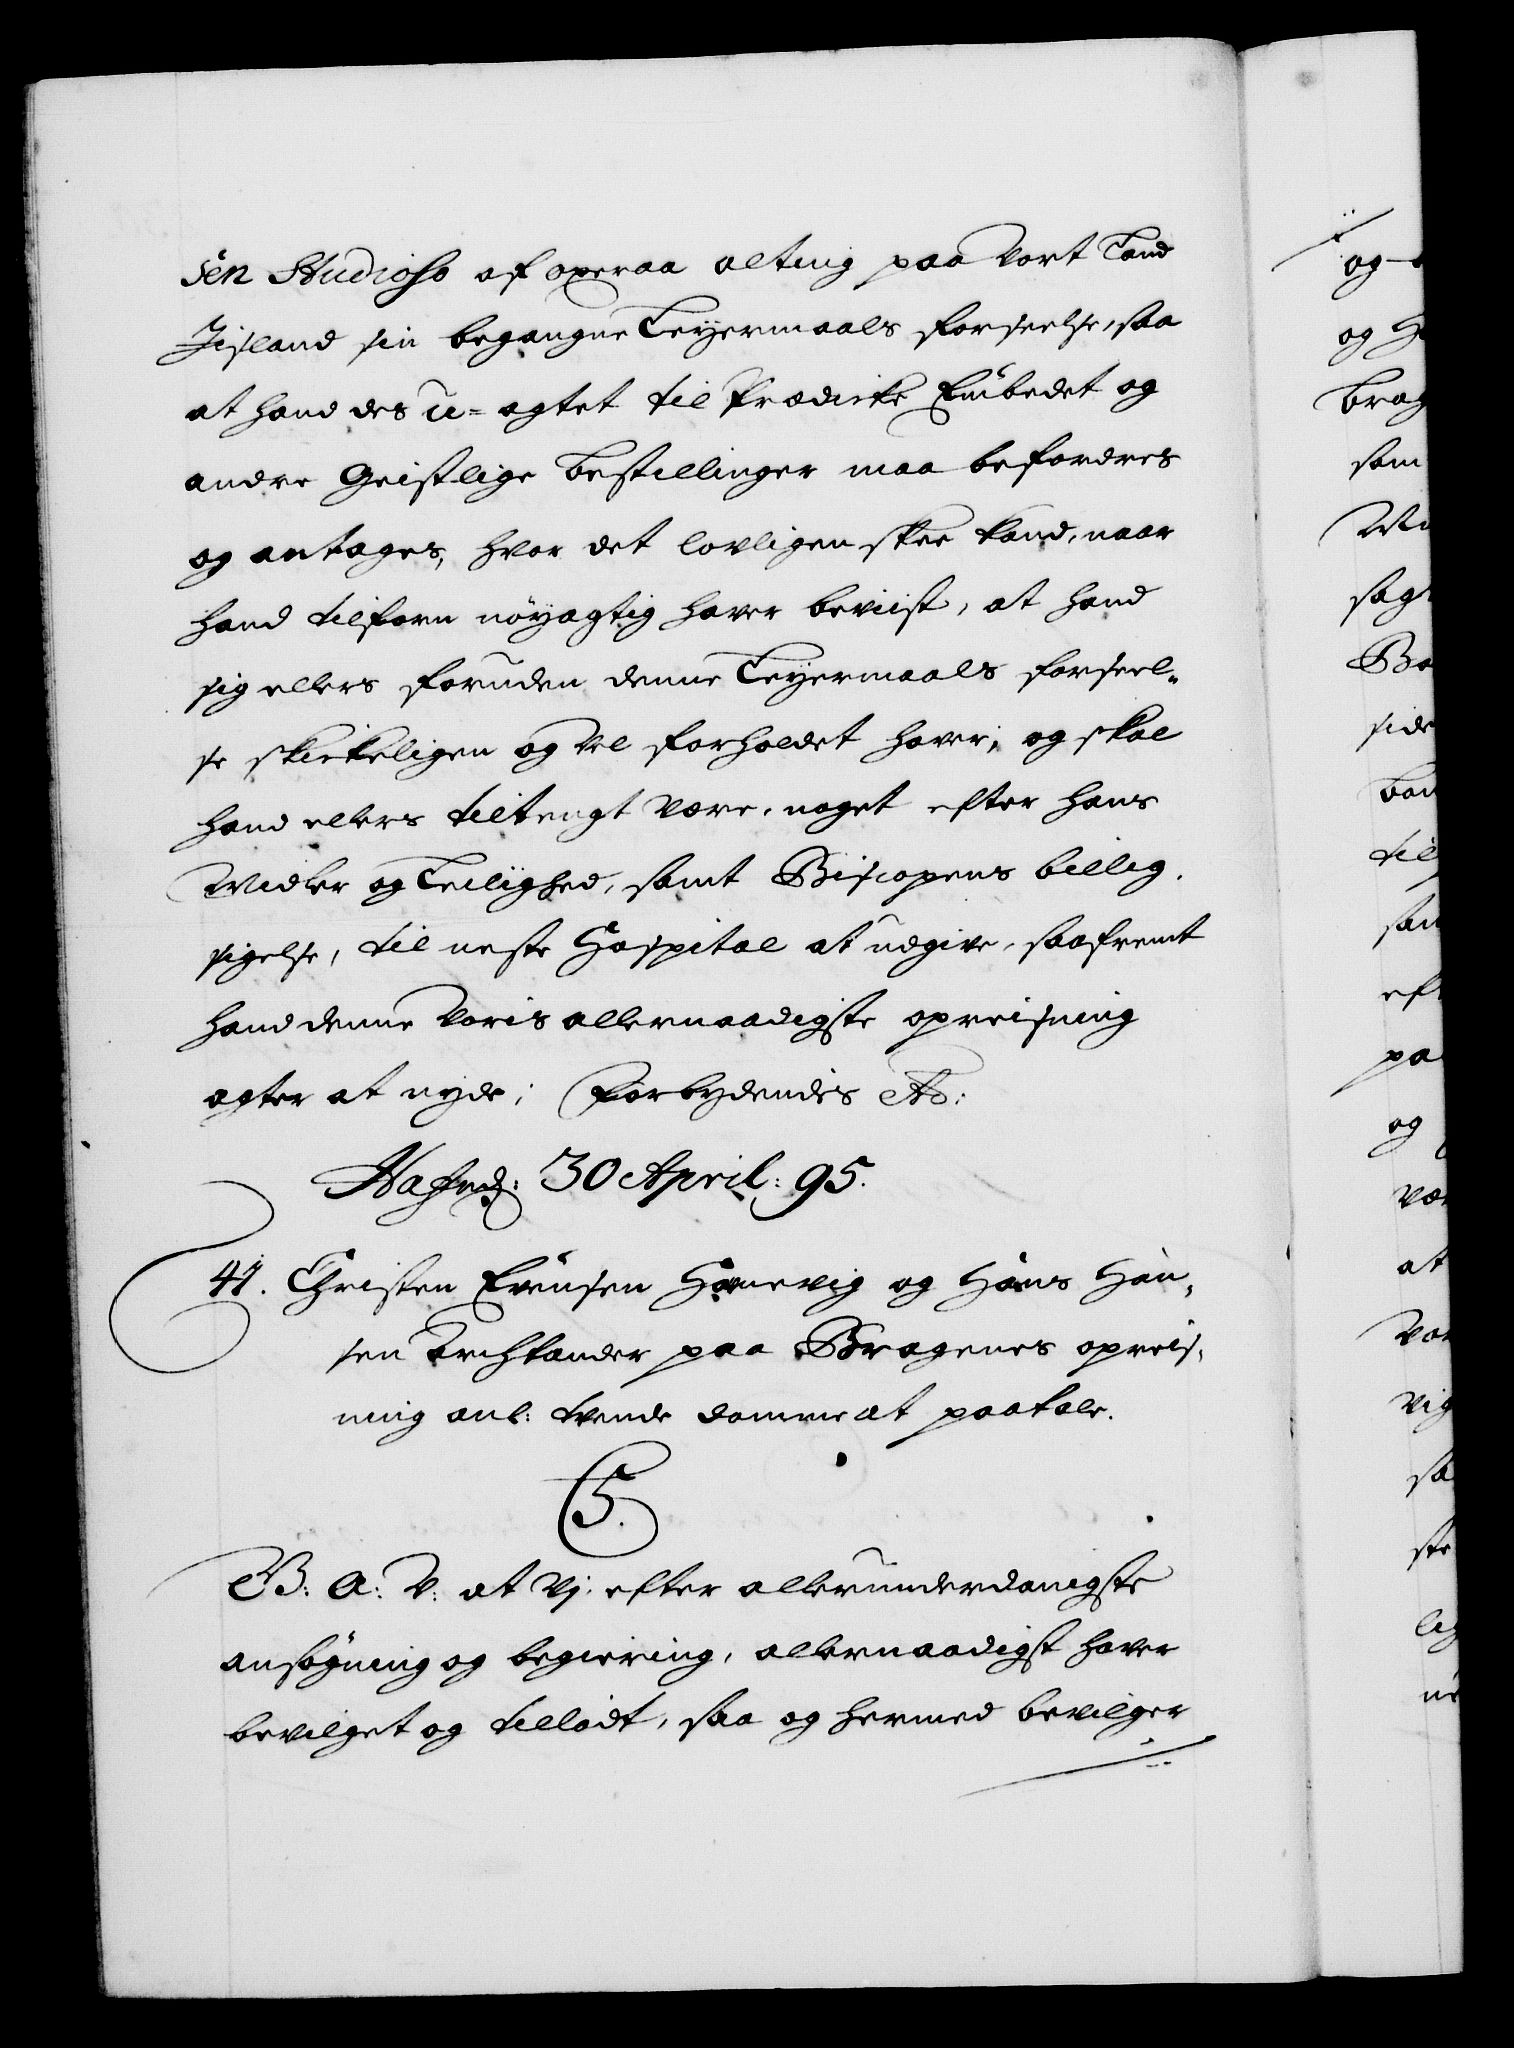 sen Studioso af operaa alting paa Vort Land
Jisland sin begangne Leyermaals forseelse, saa
at hand des u=agtet til Prædicke Embedet og
andre Geistlige bestillinger maa befordres
og antages, hvor det lovligen skee kand, naar
hand tilforn nöyagtig haver beviist, at hand
sig ellers foruden denne Leyermaals forseel-
se skickeligen og vel forholdet haver; og skal
hand ellers tiltengt være, noget efter hans
Midler og Leilighed, samt Biscopens billig
sigelse, til neste Hospital at udgive, saafremt
hand denne Voris allernaadigste opreisning
agter at nyde; Forbydendis &c:
Hafnd: 30 April: 95.
41. Christen Evensen Honevig og Hans Han-
sen paa Bragenes opreis-
ning anl: tvende domme at paatale.
C5.
G: A: V: at Vj efter allerunderdanigste
ansøgning og begiering, allernaadigst haver
bevilget og tilladt, saa og hermed bevilger
og
og
Brag
som
sagt
side
til
sam
eft
pa
og
at
sa
ste